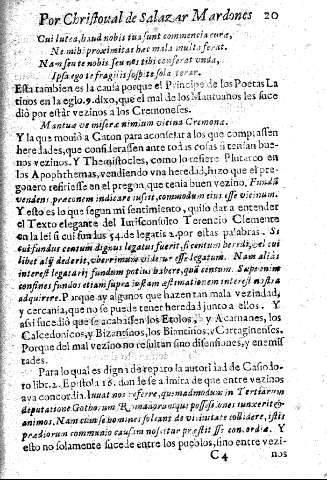 Por Christoual de Salazar Mardones 20
Cui lutea, haud nobis tua sunt commercia cura,
Ne mihi proximitas hac mala multa ferat.
Nam seu te nobis seu nos tibi conferat vnda,
Ipsa ego te fragilis sospite sola terar.
Esta tambien es la causa porque el Principe de los Poetas La
tinos en la eglo. 9. dixo, que el mal de los Mantuanos les suce
diò por estàr vezinos a los Cremoneses.
Mantua væ miseræ nimium vicina Cremonæ.
Y la que mouiò a Caton para aconsejar a los que comprassen
heredades, que considerassen ante todas cosas si tenian bue-
nos vezinos. Y Themistocles, como lo refiere Plutarco en
los Apophthemas, vendiendo vna heredad, hizo que el pre-
gonero refiriesse en el pregon, que tenia buen vezino. Fundũ
vendens præconem indicare iussit, commodum eius esse vicinum.
Y esto es lo que segun mi sentimiento, quiso dar a entender
el Texto elegante del Iurisconsulto Terencio Clemente
en la lei si cui fundus 54. de legatis 2. por estas palabras. Si
cui fundus centum dignus legatus fuerit, si centum heredi, vel cui
libet alij dederit, vberrimum videtur esse legatum. Nam alias
interest legatarij fundum potius habere, quã centum. Sæpe enim
confines fundos etiam supra iustam æstimationem interest nostra
adquirere. Porque ay algunos que hazen tan mala vezindad,
y cercania, que no se puede tener heredad junto a ellos. Y
assi sucediò que se acabassen los Etolos, y Acarnanes, los
Calcedonicos, y Bizansinos, los Biontinos, y Cartaginenses.
Porque del mal vezino no resultan sino disensiones, y enemis
tades.
Para lo qual es digna de reparo la autoridad de Casiodo-
ro libr. 2. Epistola 16. donde se admira de que entre vezinos
aya concordia. Iuuat nos referre, quemadmodum in Tertiarum
deputatione Gothorum Romanorumque possessiones iunxerit &
animos. Nam cum se homines soleant de vicinitate collidere, istis
prædiorum communio causam noscitur præstitisse concordiæ. Y
esto no solamente sucede entre los pueblos, sino entre vezi-
C 4 nos